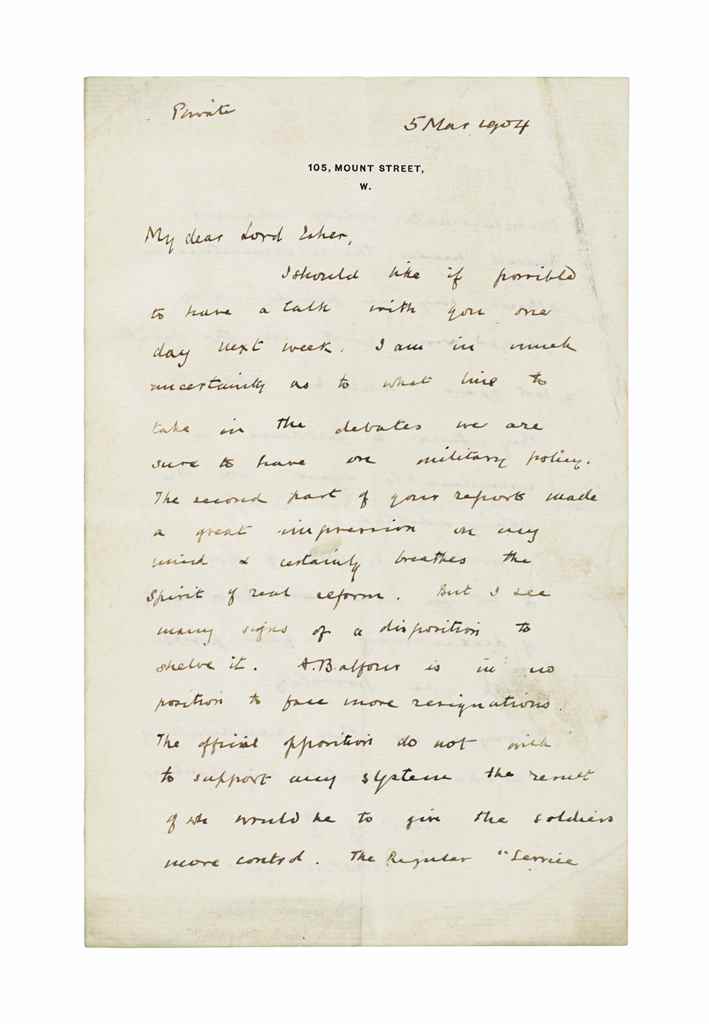 Private
5 Mar 1904
105, MOUNT STREET,
W.
My dear Lord Esher,
I should like if possible
to have a talk with you one
day next week. I am in much
uncertainty as to what line to
take in the debates we are
sure to have on military policy.
The second part of your report made
a great impression on my
mind & certainly breathes the
spirit of real reform. But I see
many signs of a disposition to
shelve it. A. Balfour is in no
position to face more resignations.
The official opposition do not wish
to support any system the result
of wh would be to give the soldiers
more control. The Regular "Service